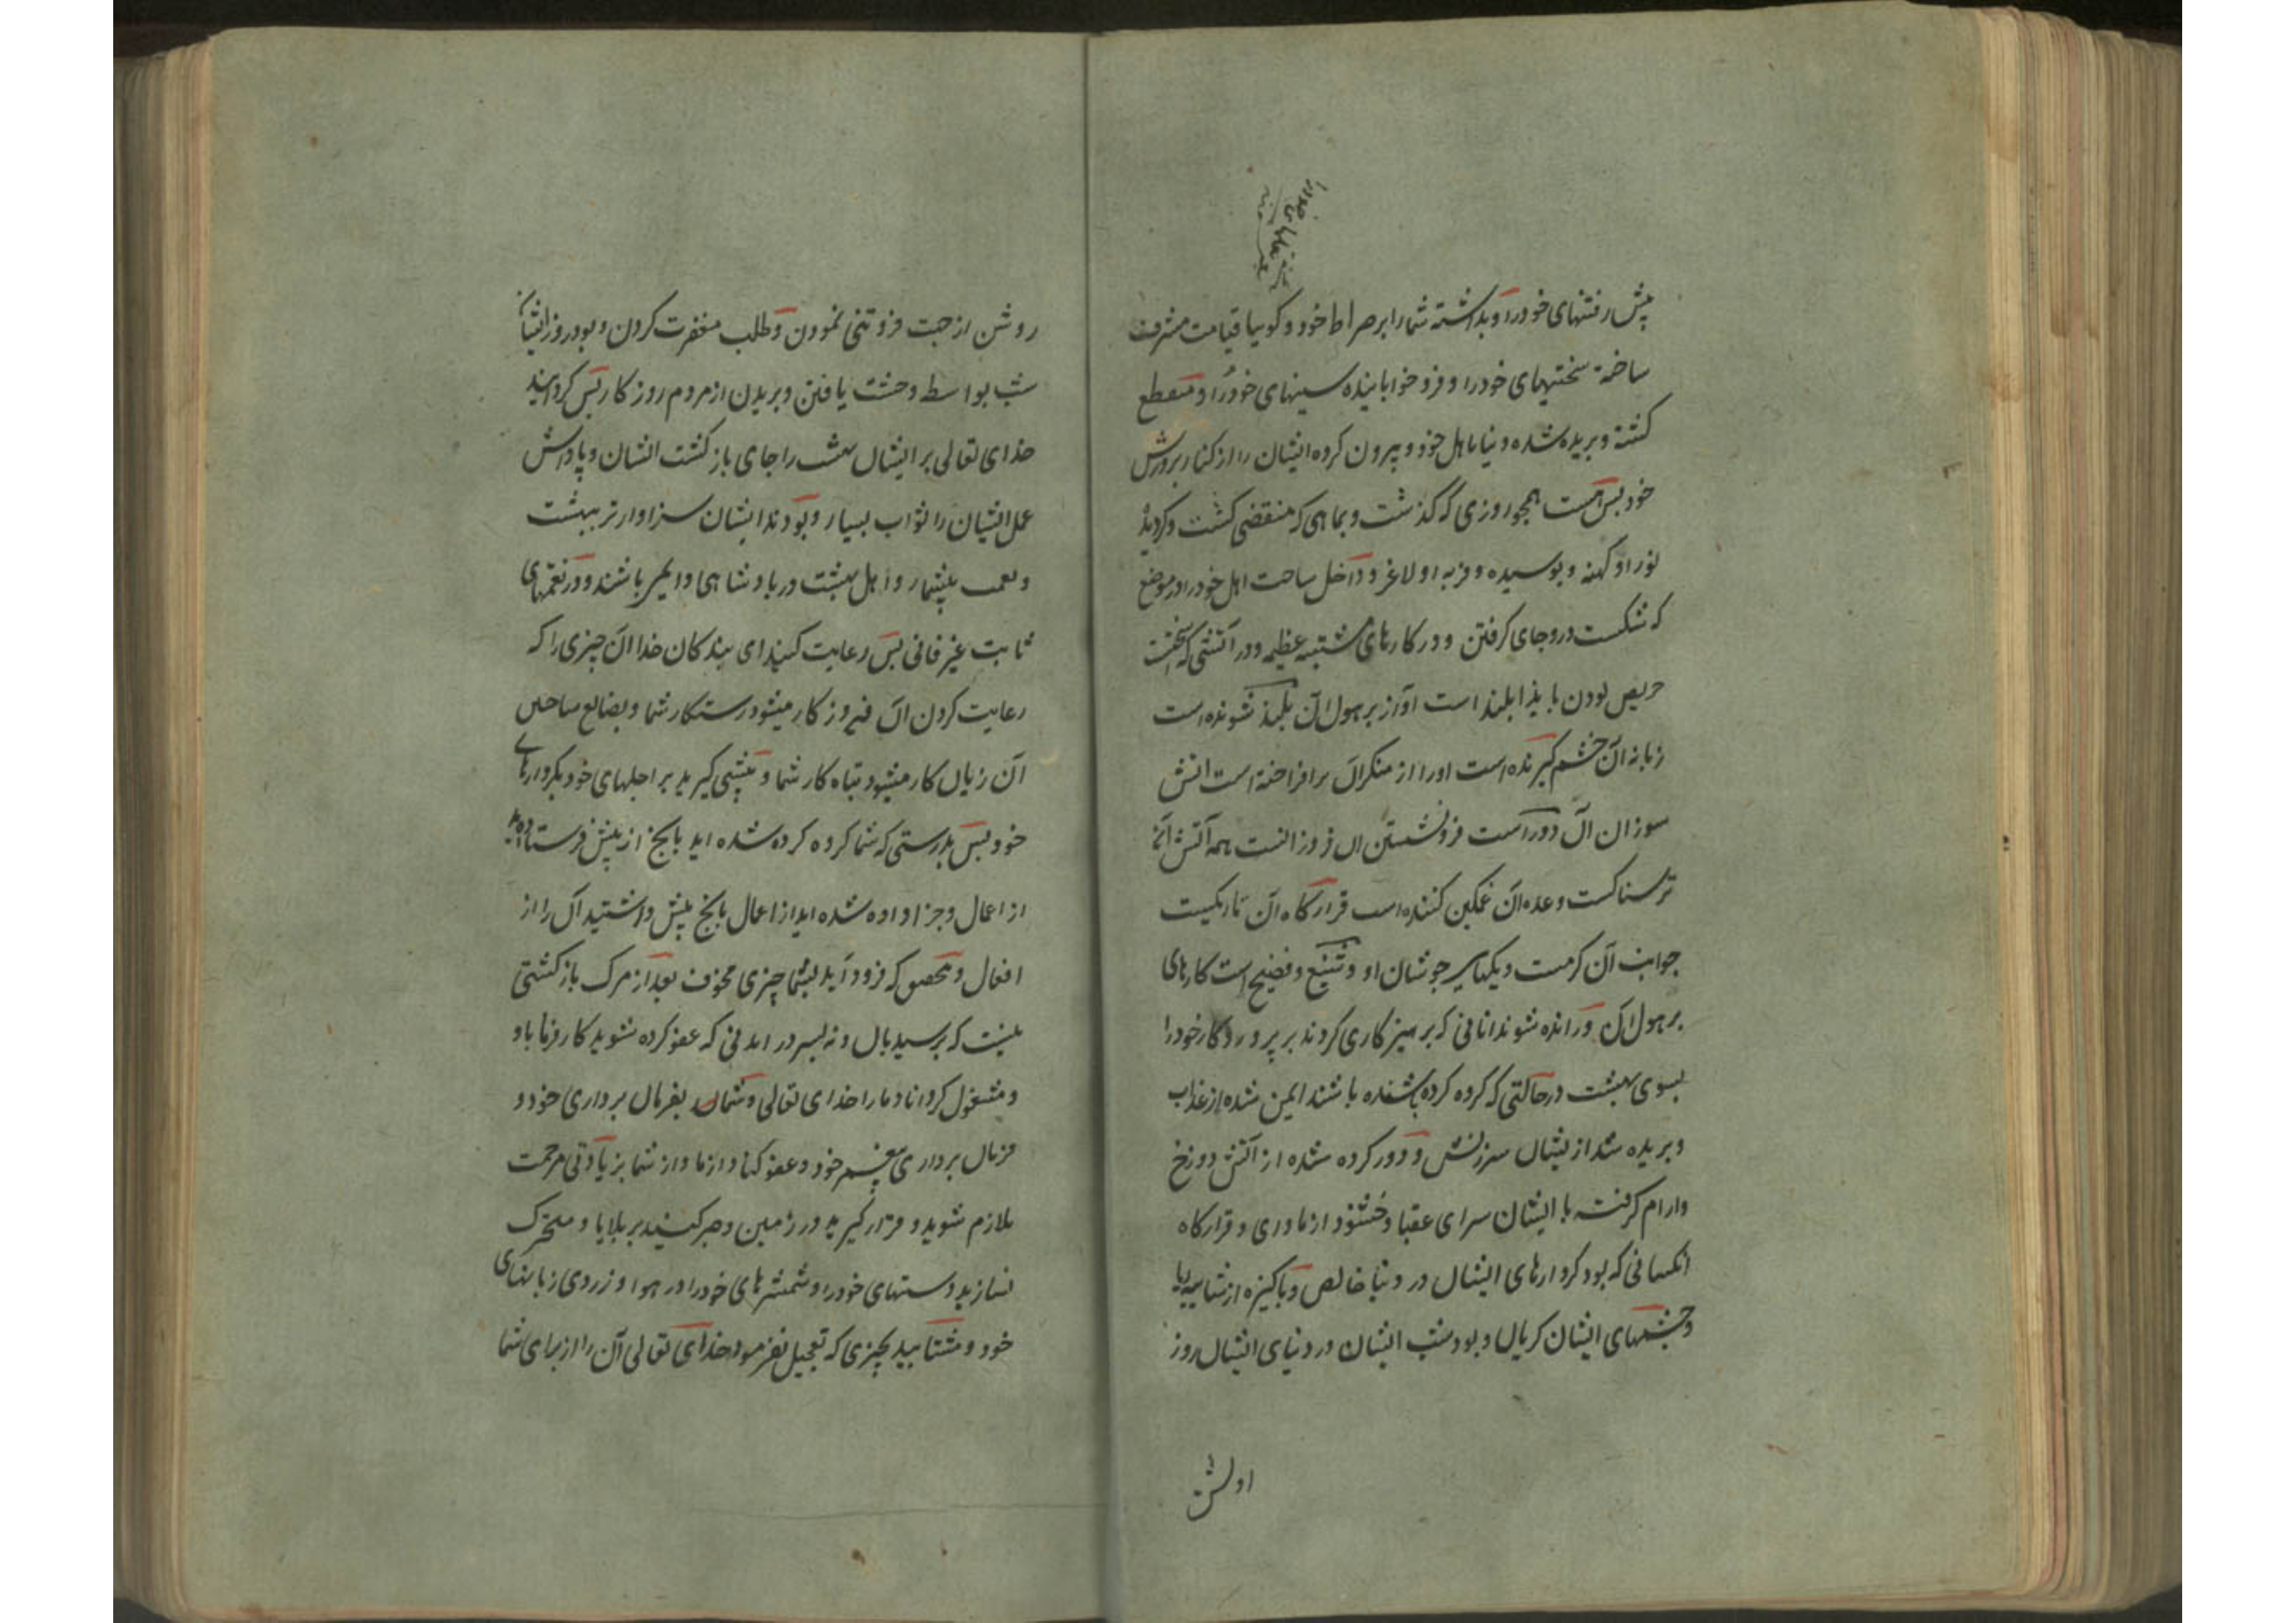 پیش رفتنهای خود را و بداشته شما را بر صراط خود و کوییا قیامت مشرف
ساخته سختیهای خود را و فرو خوابانیده سینهای خود را و منقطع
کشته و بریده شده دنیا باهل خود و بیرون کرده ایشان را از کنار پرورش
خود پس هست همچو روزی که کذشت و بماهی که منقضی کشت و کردید
نو را و کهنه و بوسیده و فربه او لاغر و داخل ساحت اهل خود را در موضع
که شکست درو جای کرفتن و در کارهای مشتبه عظیمه و در آتشی که سختست
حریص بودن بایذا بلند است آواز پر هول آن بلند شونده است
زبانه آن خشم کیرنده است او را از منکران برافراخته است آتش
سوزان آن دور است فرو نشستن آن فروزانست همه آتش آن
ترسناکست وعده آن غمکین کننده است قرارکاه آن تاریکیست
جوانب آن کرمست دیکهای جوشان او و شنیع و فضیح است کارهای
پر هول آن و رانده شوند انانی که برهیزکاری کردند بر پروردکار خود را
بسوی بهشت در حالتی که کروه کرده شده باشند ایمن شده از عذاب
و بریده شد از یشان سرزنش و دور کرده شده از آتش دوزخ
و ارام کرفت با ایشان سرای عقبا و خشنود از ماوری و قرارکاه
انکسانی که بود کردارهای ایشان در دنیا خالص و باکیزه از شایبه ریا
و چشمهای ایشان کریان و بود شب ایشان در دنیای ایشان روز
روشن از جهت فروتنی نمودن و طلب مغفرت کردن و بود روز ایشان
شب بواسطه وحشت یافتن و بریدن از مردم روزکار پس کردانید
خدای تعالی بر ایشان بهشت را جای بازکشت ایشان و پاداش
عمل ایشان را ثواب بسیار و بودند ایشان سزاوارتر ببهشت
و نعمت بیشمار و اهل بهشت در بادشاهی دایم باشند و در نعمتهای
ثابت غیر فانی پس رعایت کنید ای بندکان خدا ان چیزی را که
رعایت کردن ان فیروزکار میشود رستکار شما و بضایع ساختن
آن زیان کار میشود تباه کار شما و پیشی کیرید بر اجلهای خود بکردارهای
خود پس بدرستی که شما کروه کرده شده اید بانچ از پیش فرستاده اید
از اعمال و جزا داده شده اید از اعمال بانچ پیش داشتید آن را از
افعال و تحقیق که فرود آید بشما چیزی مخوف بعد از مرک بازکشتی
نیست که برسید بان و نه لغزیدنی که عفو کرده شوید کار فرماباد
و مشغول کرداناد ما را خدای تعالی و شما را بفرمان برداری خود و
فرمان برداری پیغمبر خود و عفو کناد از ما و از شما بزیادتی مرحمت
ملازم شوید و قرار کیرید در زمین و صبر کنید بر بلایا و متحرک
نسازید دستهای خود را و شمشیرهای خود را در هوا و زردی زبانهای
خود و مشتابید بچیزی که تعجیل نفرمود خدای تعالی آن را از برای شما